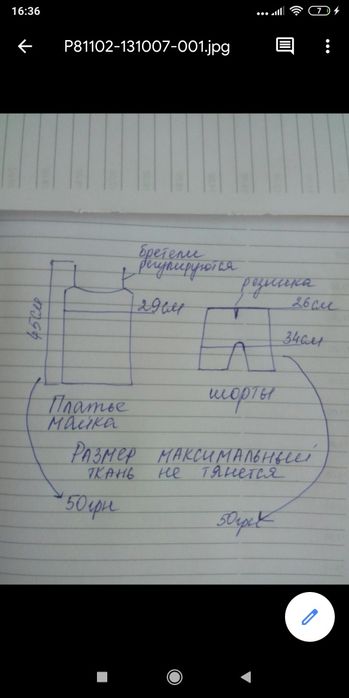 16:36
7
P81102-131007-001.jpg
бретели
регулируются
резинка
45см
29см
26см
34см
Платье
майка
шорты
Размер максимальный
ткань не тянется
50грн
50грн